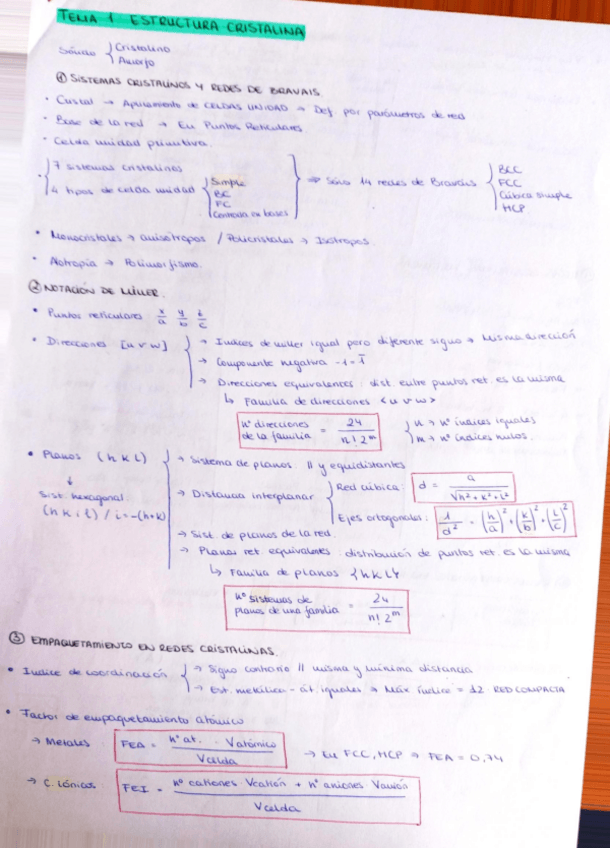 TEMA 1 ESTRUCTURA CRISTALINA
Sólido { Cristalino
Amorfo
① SISTEMAS CRISTALINOS Y REDES DE BRAVAIS.
• Cristal → Apilamiento de CELDAS UNIDAD → Def por parámetros de red
• Base de la red → En Puntos Reticulares
• Celda unidad primitiva.
• { 7 sistemas cristalinos
4 tipos de celda unidad { Simple
BC
FC
Centrada en bases
} ⇒ Sólo 14 redes de Bravais { BCC
FCC
Cúbica simple
HCP
• Monocristales → anisótropos / Policristales → Isótropos.
• Alotropía → Polimorfismo.
② NOTACIÓN DE MILLER.
• Puntos reticulares x/a y/b z/c
• Direcciones [u v w] { → Indices de miller igual pero diferente signo → Misma dirección
→ Componente negativa -1 = 1̅
→ Direcciones equivalentes : dist. entre puntos ret. es la misma
↳ Familia de direcciones <u v w>
nº direcciones de la familia = 24 / n! 2^m { n → nº índices iguales
m → nº índices nulos.
• Planos (h k l) { → Sistema de planos: // y equidistantes
↓
Sist. hexagonal
(h k i l) / i = -(h+k)
→ Distancia interplanar { Red cúbica: d = a / √h²+k²+l²
Ejes ortogonales: 1/d² = (h/a)² + (k/b)² + (l/c)²
→ Sist. de planos de la red.
→ Planos ret. equivalentes : distribución de puntos ret. es la misma
↳ Familia de planos {h k l}
nº sistemas de planos de una familia = 24 / n! 2^m
③ EMPAQUETAMIENTO EN REDES CRISTALINAS.
• Indice de coordinación { → Signo contrario // misma y mínima distancia
→ Est. metálica - át. iguales → Máx índice = 12 RED COMPACTA
• Factor de empaquetamiento atómico
→ Metales FEA = nº at. · Vatómico / Vcelda → En FCC, HCP ⇒ FEA = 0,74
→ C. Iónicos FEI = nº cationes · Vcatión + nº aniones · Vanión / Vcelda